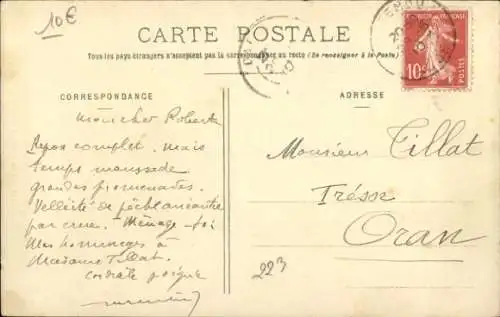 10€
CARTE POSTALE
Tous les pays étrangers n'acceptent pas la correspondance au recto (Se renseigner à la Poste)
CORRESPONDANCE
ADRESSE
10c
POSTES
Mon cher Robert
Repos complet. Mais
temps maussade
grandes promenades.
Velléité de pêche
par crue. Ménage-toi
Mes hommages à
Madame Tillat.
Cordiale poignée
Monsieur Tillat
Trésor
Oran
223